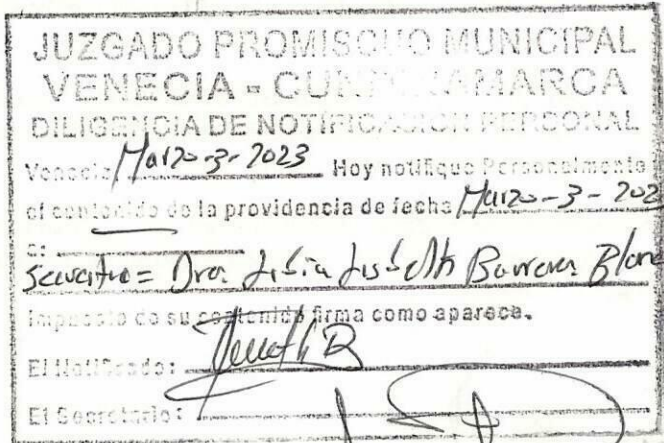 JUZGADO PROMISCUO MUNICIPAL
VENECIA - CUNDINAMARCA
DILIGENCIA DE NOTIFICACION PERSONAL
Venecia Marzo-3-2023 Hoy notifique Personalmente
el contenido de la providencia de fecha Marzo-3-202
a:
Dra.
Impuesto de su contenido firma como aparece.
El Notificado:
El Secretario: